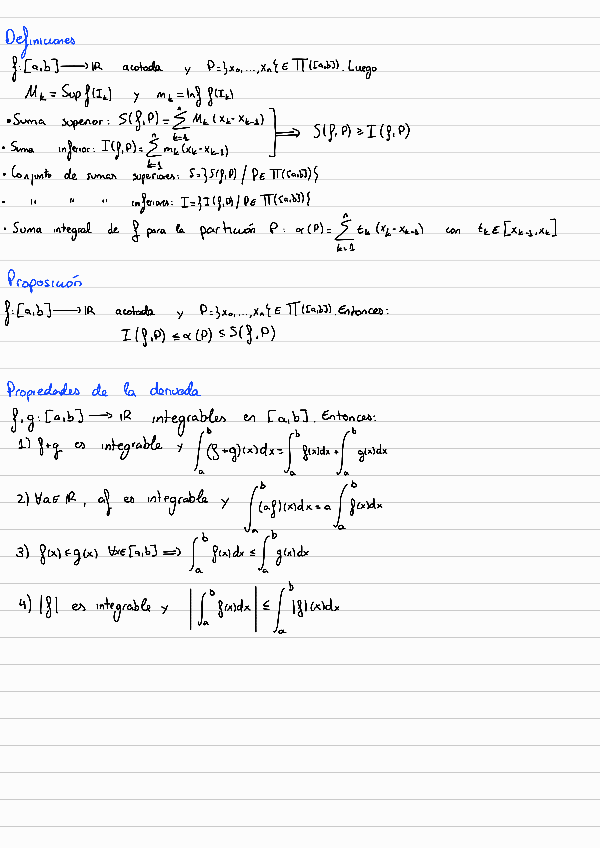 Definiciones
f:[a,b]⟶ℝ acotada y P=}x₀,...,xₙ{∈∏([a,b]). Luego
Mₖ=Sup f(Iₖ) y mₖ=Inf f(Iₖ)
• Suma superior: S(f,P)=∑ₖ₌₁ⁿ Mₖ(xₖ-xₖ₋₁) ⟹ S(f,P)≥I(f,P)
• Suma inferior: I(f,P)=∑ₖ₌₁ⁿ mₖ(xₖ-xₖ₋₁)
• Conjunto de sumas superiores: S=}S(f,P)/P∈∏([a,b]){
• " " " inferiores: I=}I(f,P)/P∈∏([a,b]){
• Suma integral de f para la partición P: α(P)=∑ₖ₌₁ⁿ tₖ(xₖ-xₖ₋₁) con tₖ∈[xₖ₋₁,xₖ]
Proposición
f:[a,b]⟶ℝ acotada y P=}x₀,...,xₙ{∈∏([a,b]). Entonces:
I(f,P)≤α(P)≤S(f,P)
Propiedades de la derivada
f,g:[a,b]⟶ℝ integrables en [a,b]. Entonces:
1) f+g es integrable y ∫ₐᵇ(f+g)(x)dx=∫ₐᵇf(x)dx+∫ₐᵇg(x)dx
2) ∀a∈ℝ, af es integrable y ∫ₐᵇ(af)(x)dx=a∫ₐᵇf(x)dx
3) f(x)≤g(x) ∀x∈[a,b]⟹∫ₐᵇf(x)dx≤∫ₐᵇg(x)dx
4) |f| es integrable y |∫ₐᵇf(x)dx|≤∫ₐᵇ|f|(x)dx